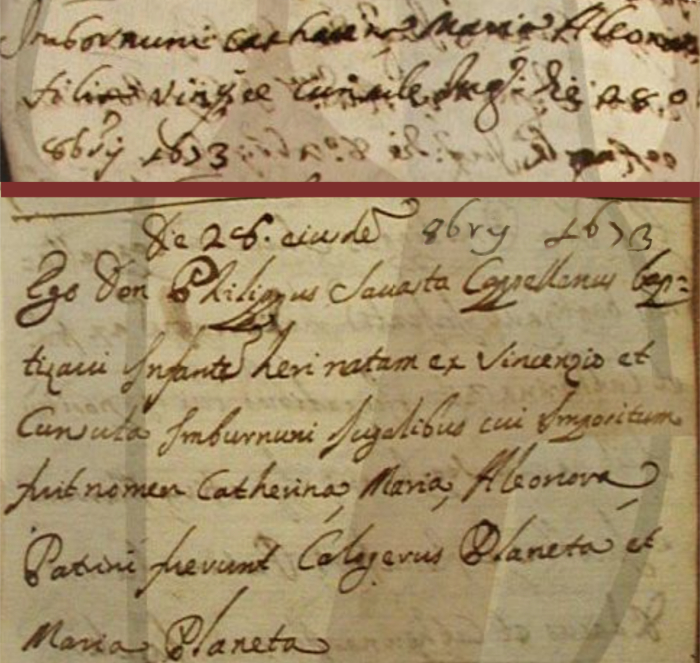 Imbornuni Catharina Maria Aleonora
filia Vinc. et Cunsule Jug. die 28.
8bris 1673
Die 28. eiusdē 8bris 1673
Ego Don Philippus Savasta Cappellanus bap=
tizaui Infantē heri natam ex Vincenzio et
Cunsula Imburnuni Jugalibus cui Impositum
fuit nomen Catherina, Maria, Aleonora
Patrini fuerunt Calogerus Planeta et
Maria Planeta